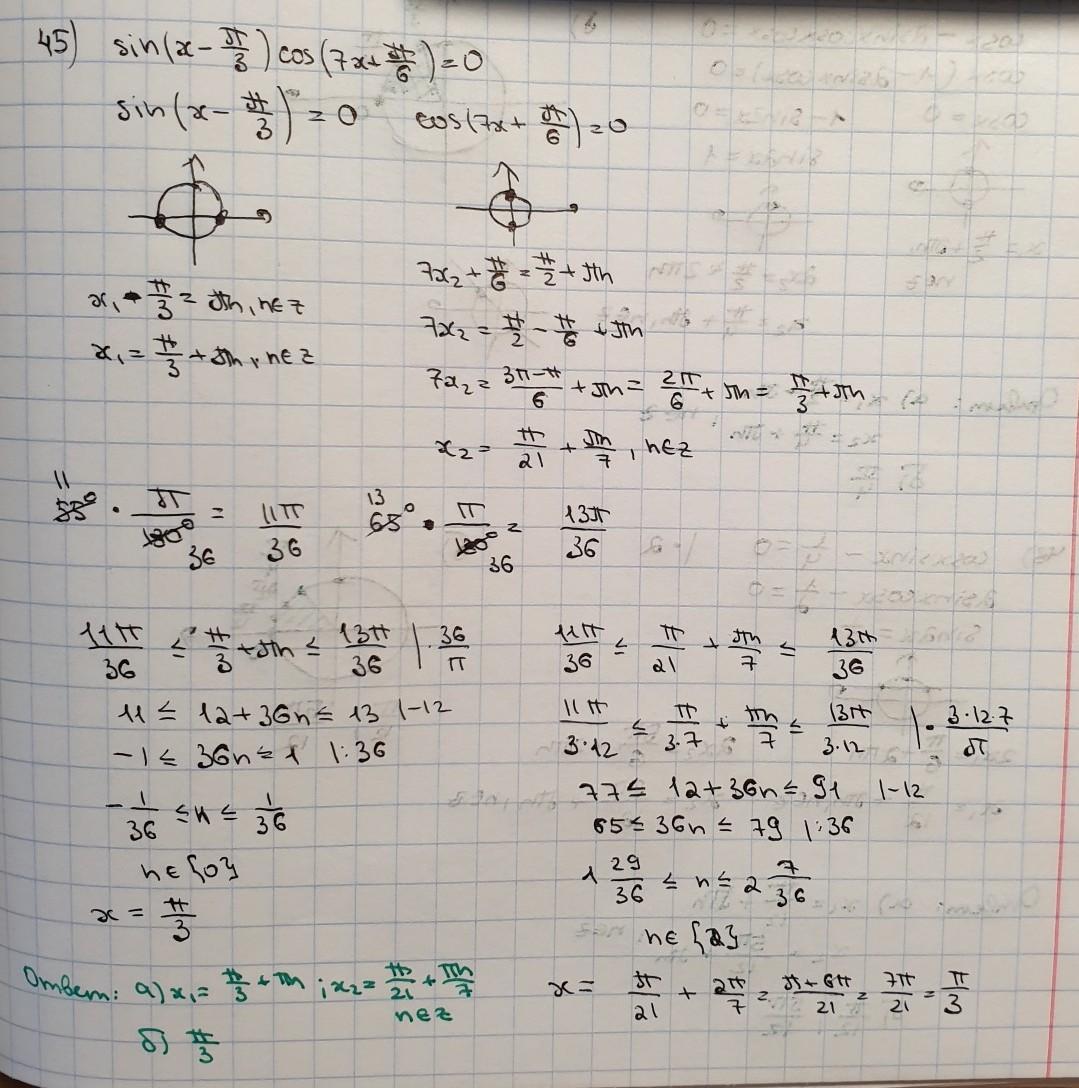 45) sin(x - π/3) cos(7x + π/6) = 0
sin(x - π/3) = 0
cos(7x + π/6) = 0
x₁ - π/3 = πn, n∈z
x₁ = π/3 + πn, n∈z
7x₂ + π/6 = π/2 + πn
7x₂ = π/2 - π/6 + πn
7x₂ = (3π-π)/6 + πn = 2π/6 + πn = π/3 + πn
x₂ = π/21 + πn/7, n∈z
11
55° · π/180° = 11π/36
36
13
65° · π/180° = 13π/36
36
11π/36 ≤ π/3 + πn ≤ 13π/36 | · 36/π
11 ≤ 12 + 36n ≤ 13 |-12
-1 ≤ 36n ≤ 1 |:36
-1/36 ≤ n ≤ 1/36
n∈{0}
x = π/3
11π/36 ≤ π/21 + πn/7 ≤ 13π/36
11π/3·12 ≤ π/3·7 + πn/7 ≤ 13π/3·12 | · 3·12·7/π
77 ≤ 12 + 36n ≤ 91 |-12
65 ≤ 36n ≤ 79 |:36
1 29/36 ≤ n ≤ 2 7/36
n∈{2}
x = π/21 + 2π/7 = (π+6π)/21 = 7π/21 = π/3
Ответ: а) x₁ = π/3 + πn ; x₂ = π/21 + πn/7
n∈z
б) π/3